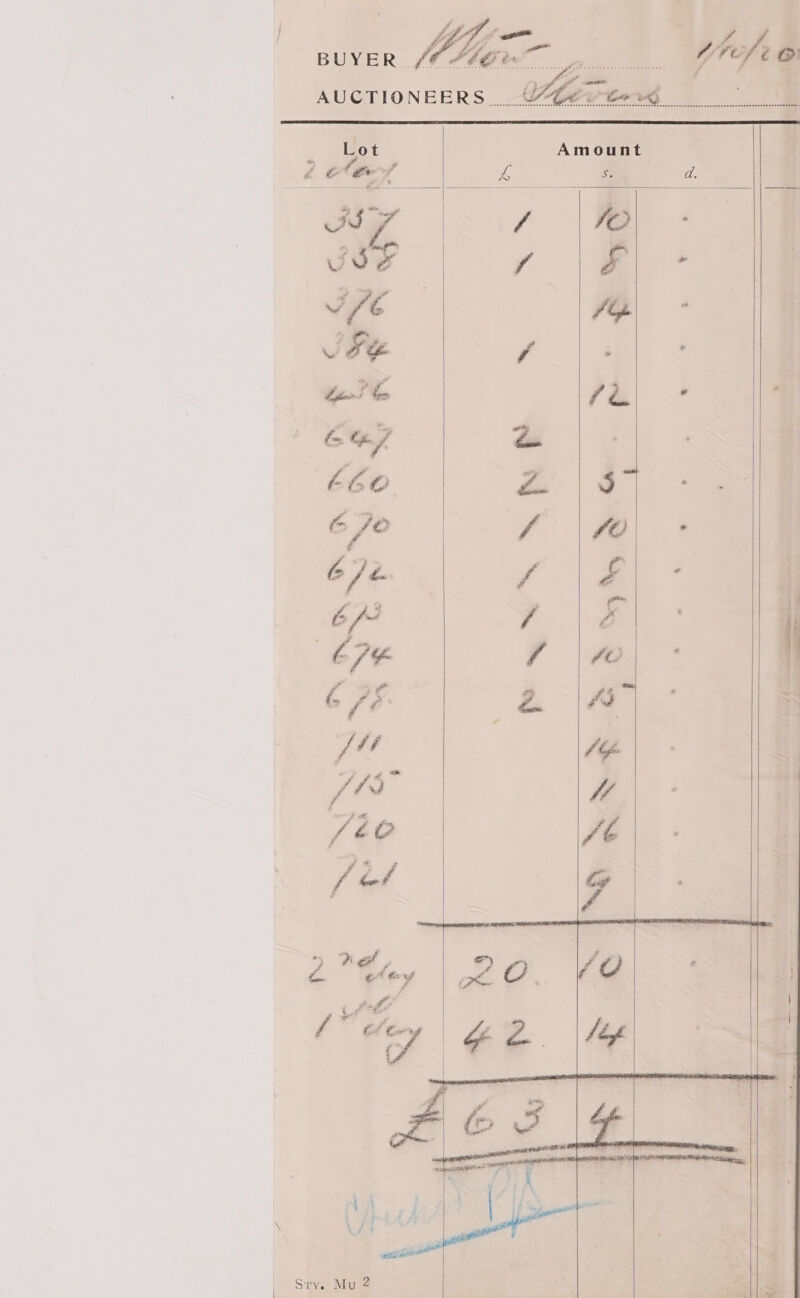 BUYER
AUCTIONEERS
Lot Amount
2 day £ s. d.
357 1 10 -
358 1 8 -
376 14 -
384 1 - -
436 12 -
647 2
660 2 5 -
670 1 10 -
672 1 8 -
673 1 8
674 1 10 -
678 2 15 -
711 14
715 11
720 16 -
721 9
2nd day 20. 10
1st day 42. 14
£63 4
Sty. Mu 2